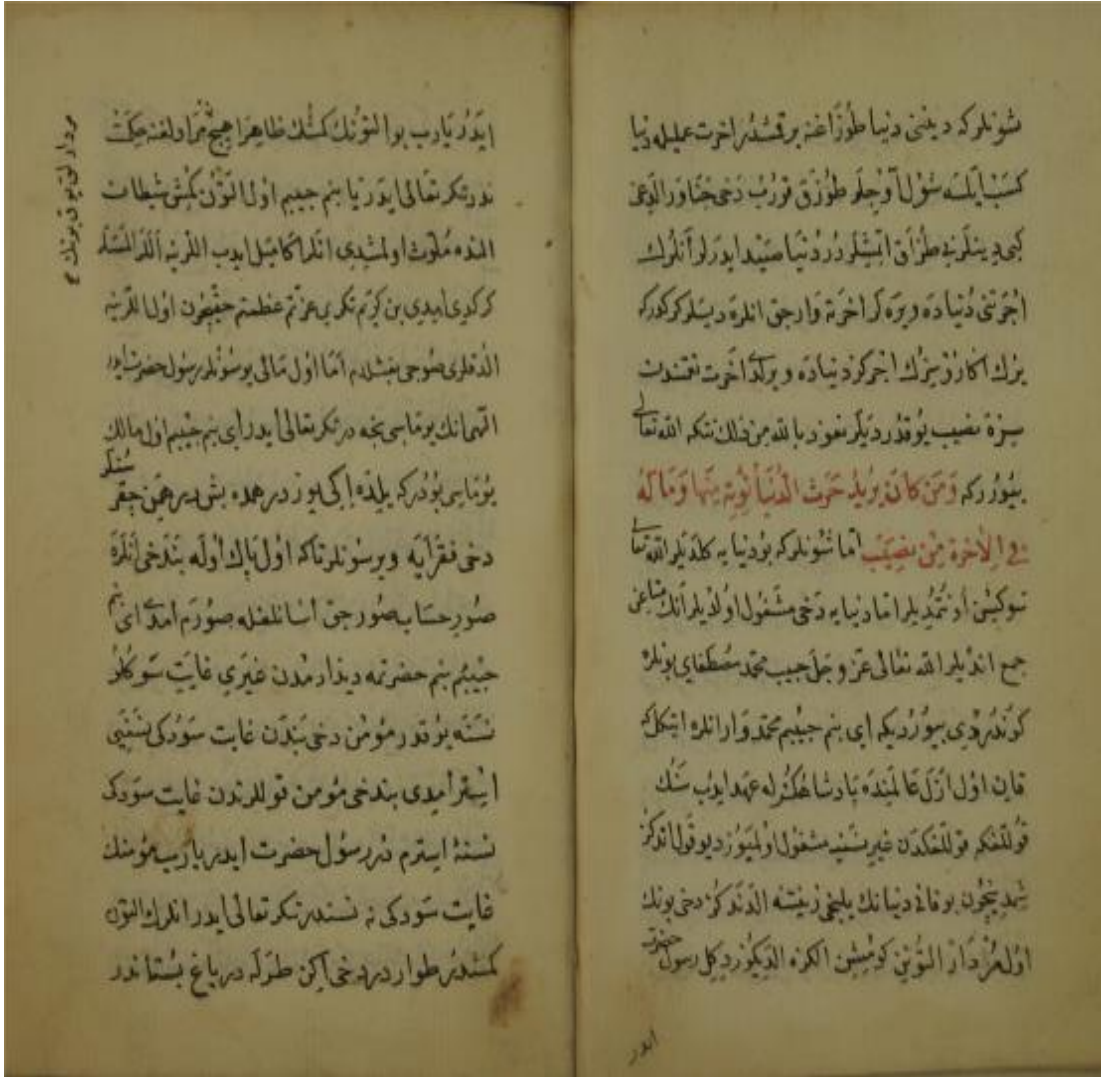 شونلر كه ديننى دنيا طوزاغنه برقمشدر اخرت عمليله دنيا
كسب ايلسه شول آوجيلر طوزق قوروب دخى
كبى دينلرنى طوزاق ايتمشلردر دنيا صيد ايدرلر آنلرك
اجرتنى دنياده ويره لر اخرته وارجق انلره ديسلر كركدركه
سزك اجركز دنياده ويرلدى آخرت نعمتندن
سزه نصيب يوقدر ديلر نعوذ بالله من ذلك نتكه الله تعالى
بيورر كه وَمَن كَانَ يُرِيدُ حَرْثَ الدُّنْيَا نُؤْتِهِ مِنْهَا وَمَا لَهُ
فِي الْآخِرَةِ مِن نَصِيبٍ امّا شونلر كه بو دنيايه كلديلر الله تعالى
اونتمديلر امّا دنيايه دخى مشغول اولديلر آنك متاعن
جمع اتديلر الله تعالى عزّ وجلّ حبيب محمّد مصطفاى بونلره
كوندردى بيورديكه اى بنم حبيبم محمّد وار انلره ايتكل كه
قانى اول ازل عالمنده پادشاهكزله عهد ايدوب سنك
قوللغكدن غيرى نسنيه مشغول اولميوز ديو قول اتدكز
شمدى نيچون بو فانى دنيانك زينتنه الدندكز دخى بونك
اول مردار التونن كومشن الكزه الديكز ديكل رسول حضرت
ايدر
ايدر يارب بو التونك كمشك ظاهرا هيچ مردارلغنه حكمت
ندر تكرى تعالى ايدر يا بنم حبيبم اول التون كمش شيطان
النده ملوث اولمشدى انلر اكا ميل ايدوب اللرينه آلدلر
كركدى امدى بن كريم تكرى عزتم عظمتم حقيچون اول اللرينه
الدقلرى صوچى بغشلدم امّا اول مالى يوسونلر رسول حضرت ايدر
الهى انك يوماسى نجه در تكرى تعالى ايدر اى بنم حبيبم اول مالك
يوماسى بودر كه يلده ايكى يوز درهمده بش درهمن چقرسنلر
دخى فقرايه ويرسونلر تاكه اول پاك اوله بن دخى آنلره
صورر حساب صورجق اسانلغله صورم امدى اى بنم
حبيبم بنم حضرتمه ديدارمدن غيرى غايت سوكلو
نسنه يوقدر مؤمن دخى بندن غايت سودكى نسنيى
ايستر امدى بن دخى مؤمن قوللرندن غايت سودكى
نسنه ايسترم در رسول حضرت ايدر يارب مؤمنك
غايت سودكى نه نسندر تكرى تعالى ايدر انلرك التون
كمشدر طواردر دخى اكن طرله در باغ بستاندر
مردارلق يوق بونك